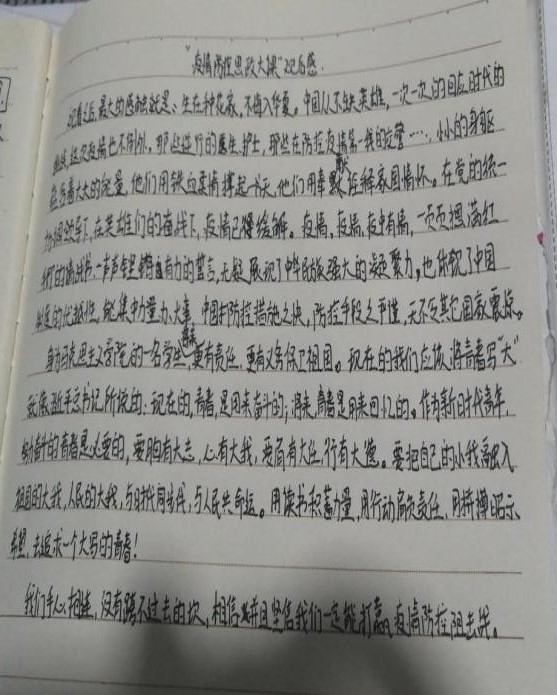 "疫情防控思政大课"观后感.
观看之后,最大的感触就是:生在种花家,不悔入华夏。中国从不缺英雄,一次一次的回应时代的
这次疫情也不例外。那些逆行的医生、护士,那些在防控疫情第一线的交警……,小小的身躯
着大大的能量,他们用铁血柔情撑起一片天,他们用奉献诠释家国情怀。在党的统一
领导下,在英雄们的奋战下,疫情已缓解。疫情,疫情,疫中有情,一页页摁满红
手印的请战书,一声声坚定有力的誓言,无疑展现了中华民族强大的凝聚力,也体现了中国
制度的优越性,能集中力量办大事,中国防控措施之快,防控手段之严谨,无不令其它国家震惊。
身为马克思主义学院的一名学生,更有责任,更有义务保卫祖国。现在的我们应该将青春写"大"
就像习近平总书记所说的:现在的,青春,是用来奋斗的;将来,青春是用来回忆的。作为新时代青年,
奋斗的青春是必要的,要胸有大志,心有大我,要肩有大任,行有大德。要把自己的小我融入
祖国的大我,人民的大我,与时代同步伐,与人民共命运。用读书积蓄力量,用行动肩负责任,用拼搏昭示
希望,去追求一个大写的青春!
我们手心相连,没有跨不过去的坎,相信并且坚信我们一定能打赢疫情防控阻击战。